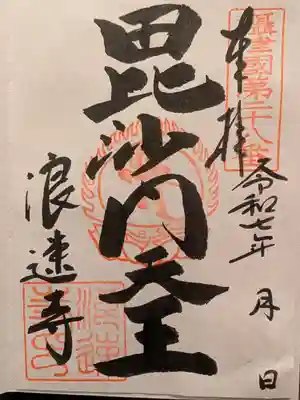 攝津國第二十八番
奉拝
令和七年 月 日
毘沙門天王
浪速寺